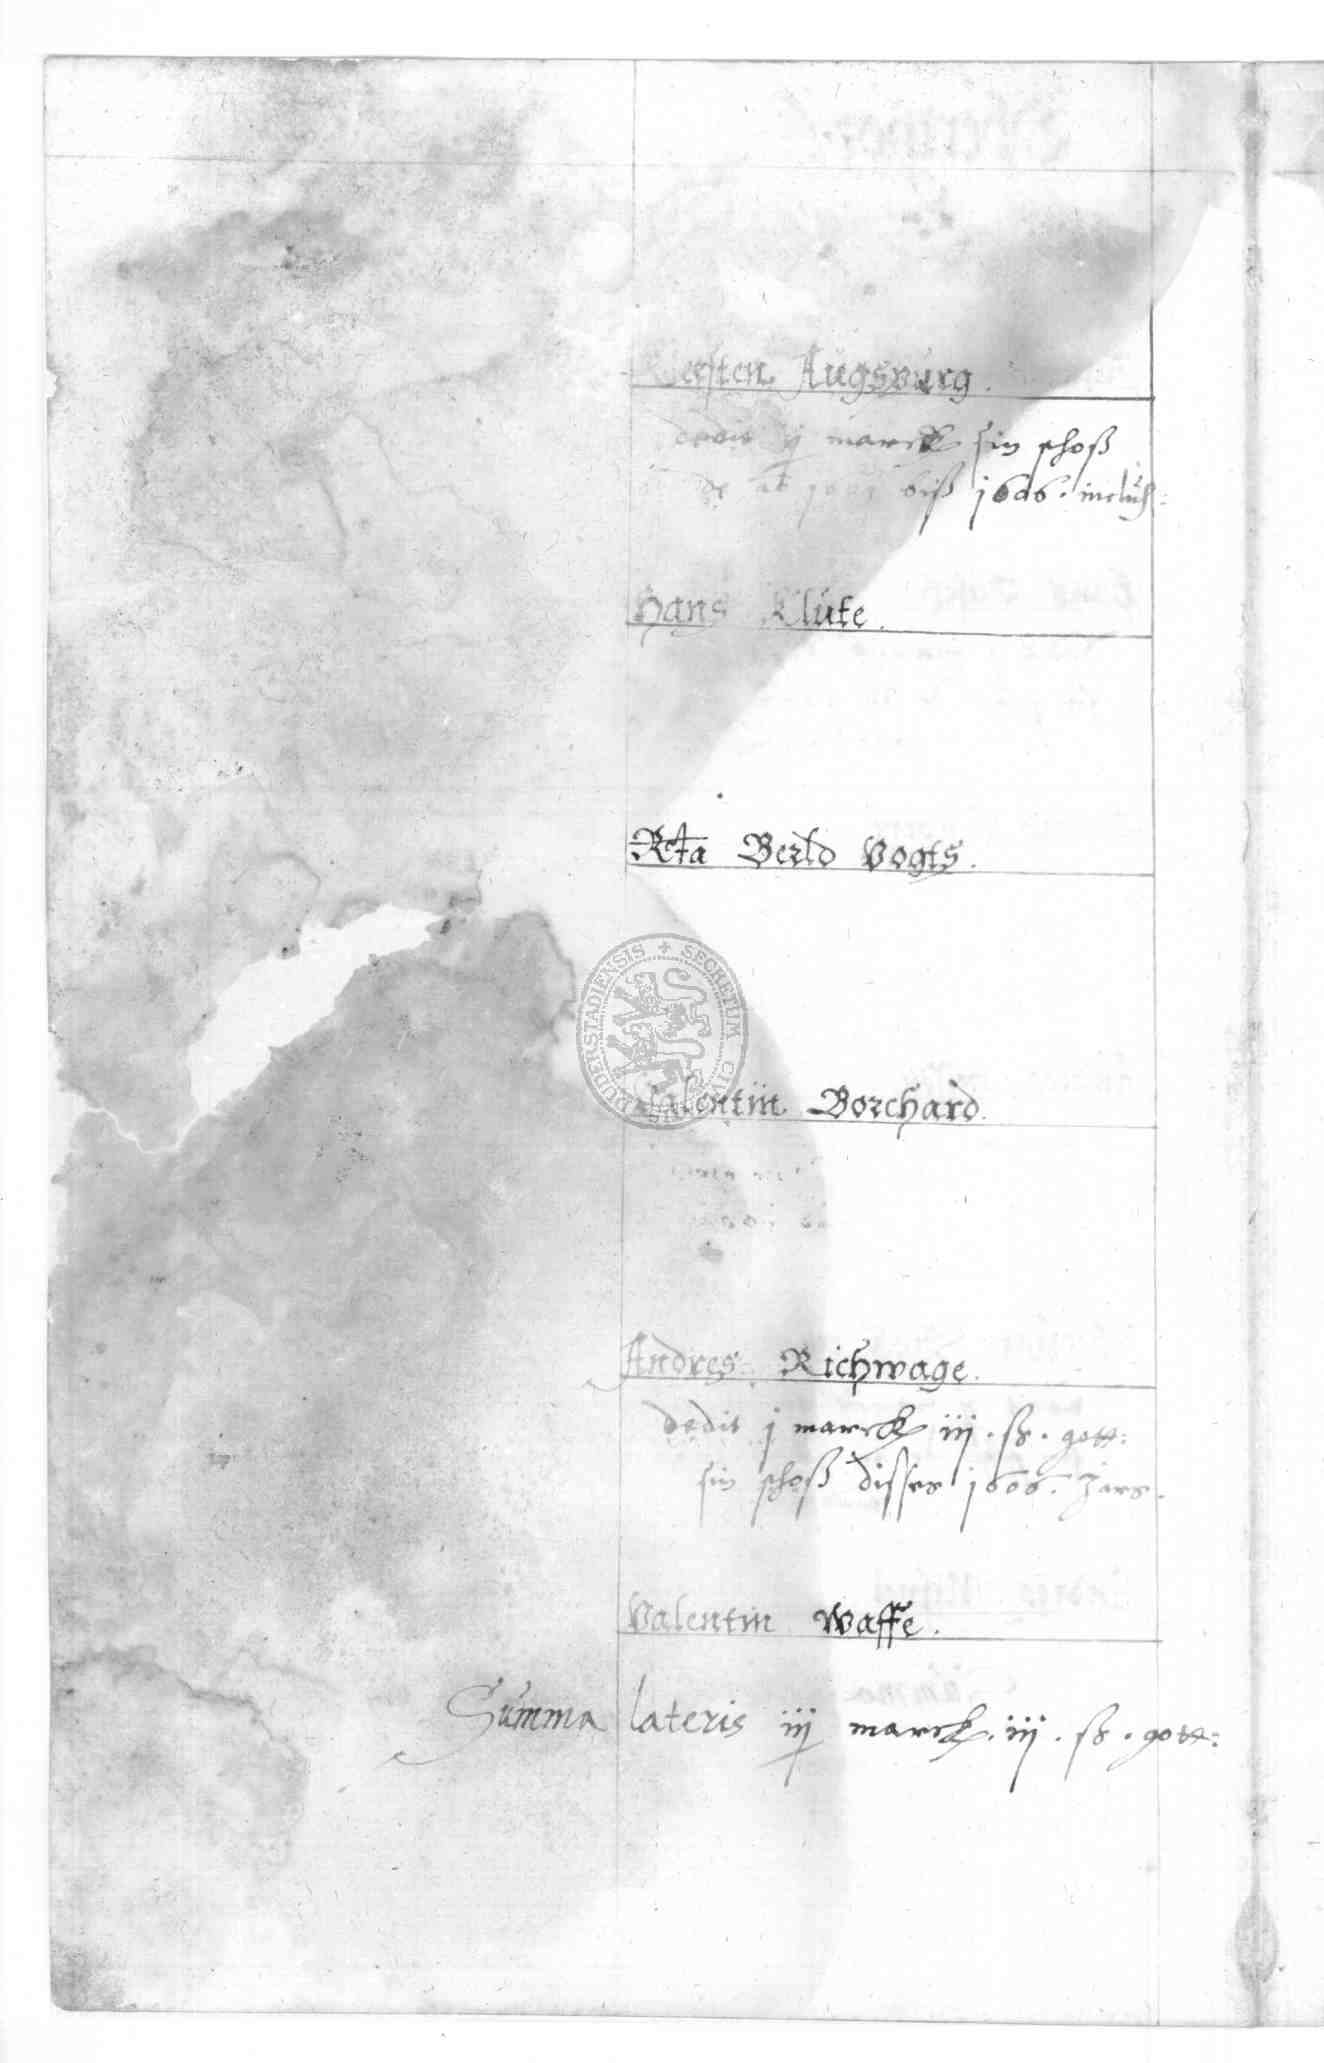 Kersten Augsburg.
dedit ij marck sin schoß
de aō 1605 biß 1606. inclus:
Hans Klute.
Rcta Berld Vogts.
Valentin Borchard.
Andres Richwage.
dedit j marck iij. ß. gott:
sin schoß disses 1606. Jars.
Valentin Waffe.
Summa lateris iij marck. iij. ß. gott:
SECRETUM CIVI DUDERSTADIENSIS